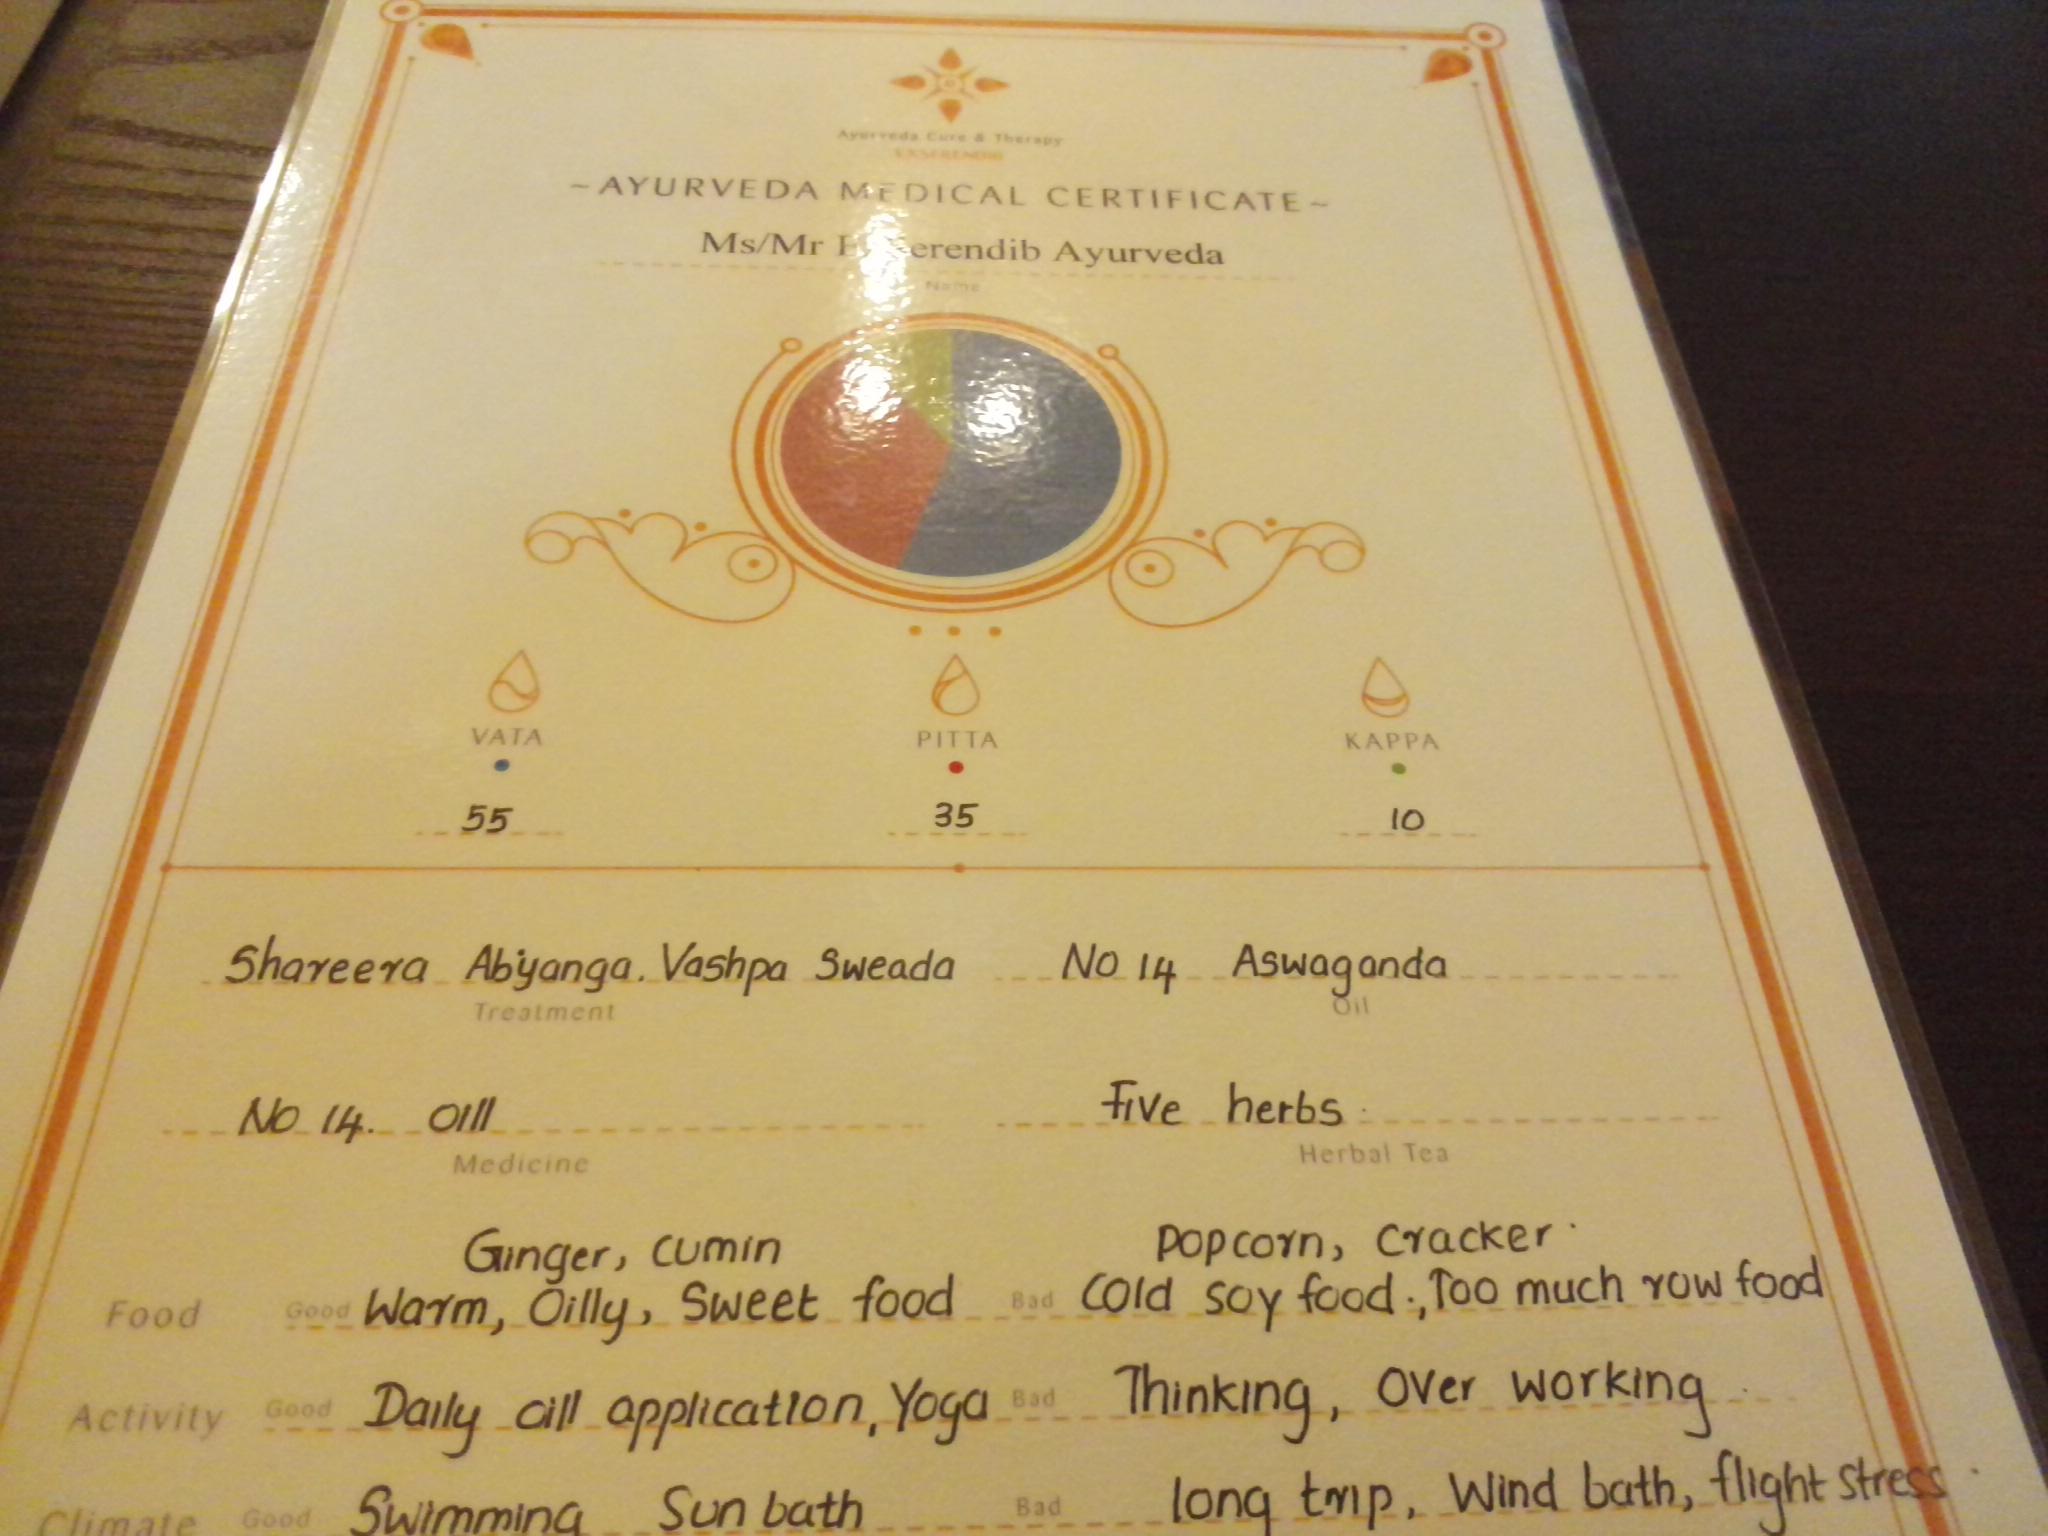 Ayurveda Cure & Therapy
EXSERENDIB
~AYURVEDA MEDICAL CERTIFICATE~
Ms/Mr Serendib Ayurveda
Name
VATA PITTA KAPPA
55 35 10
Shareera Abiyanga. Vashpa Sweada No 14 Aswaganda
Treatment Oil
No 14. Oill Five herbs.
Medicine Herbal Tea
Ginger, Cumin Popcorn, Cracker.
Food Good Warm, Oilly, Sweet food Bad Cold soy food., Too much row food
Activity Good Daily oill application, Yoga Bad Thinking, Over working.
Climate Good Swimming Sun bath Bad long trip, Wind bath, flight stress.